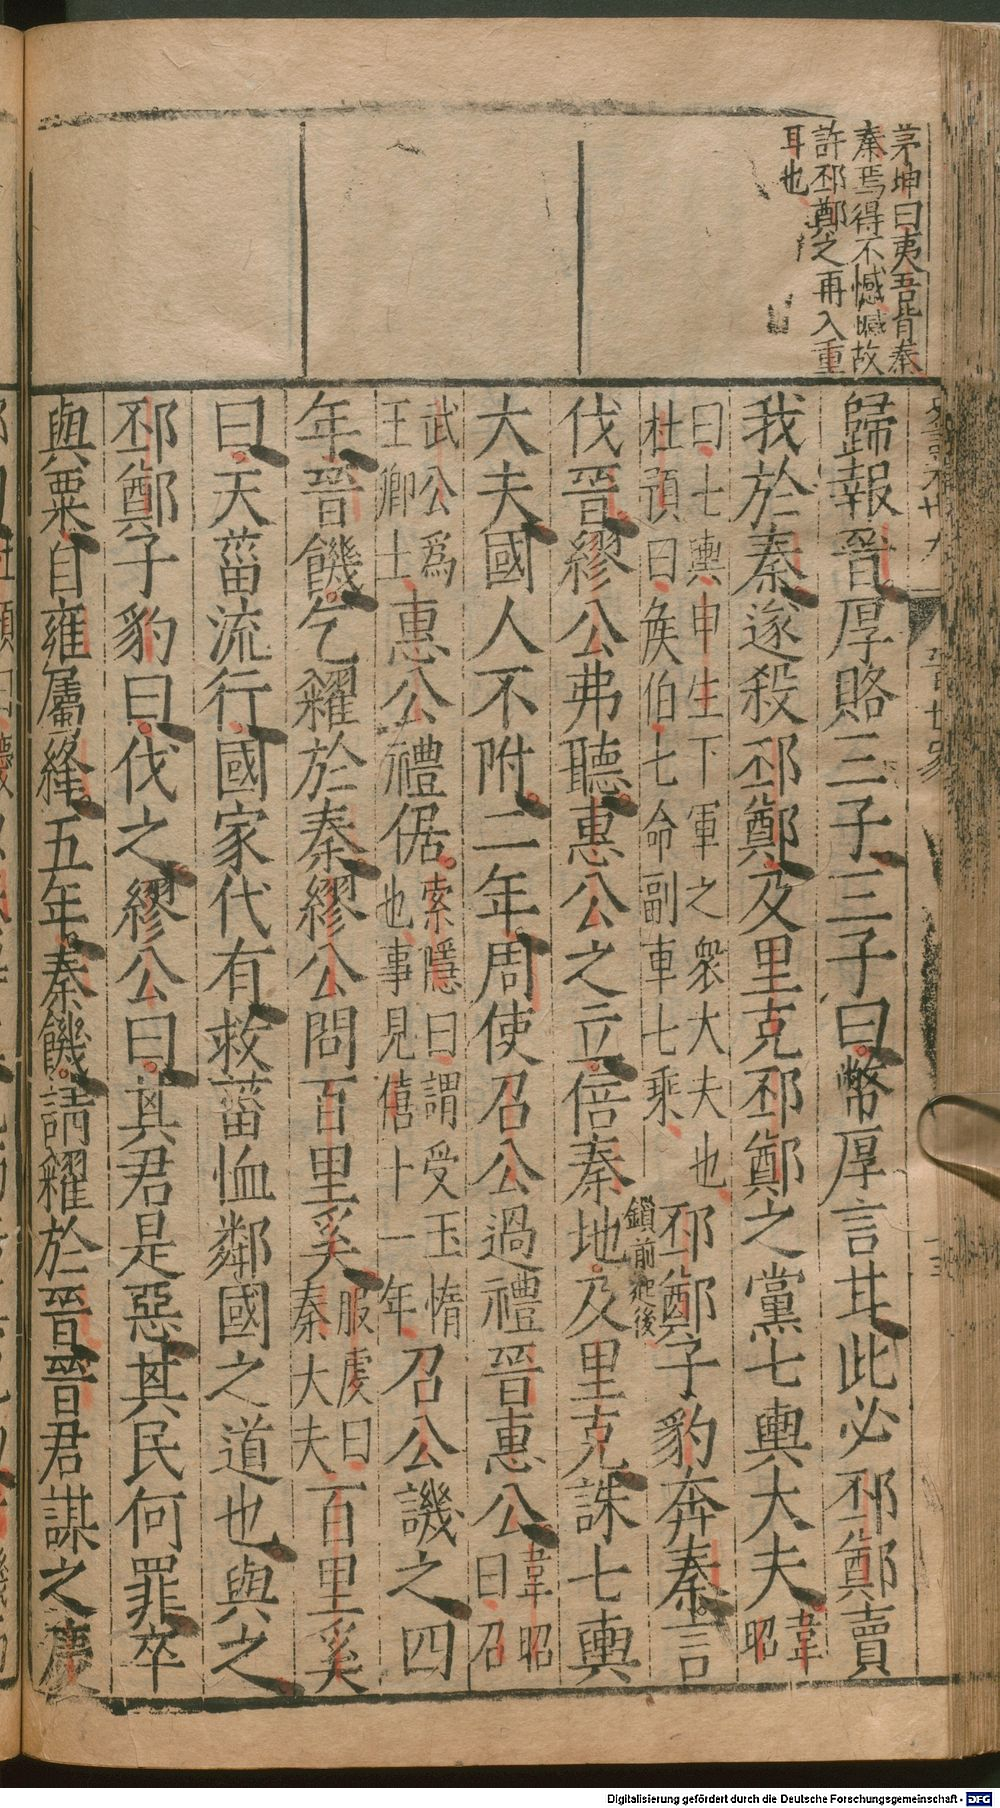 茅坤曰夷吾背秦
秦焉得不憾憾故
許邳鄭之再入重
耳也
歸報晉厚賂三子三子曰幣厚言甘此必邳鄭賣
我於秦遂殺邳鄭及里克邳鄭之黨七輿大夫韋昭
曰七輿申生下軍之衆大夫也
杜預曰矦伯七命副車七乘
邳鄭子豹奔秦言
鎖前起後
伐晉繆公弗聽惠公之立倍秦地及里克誅七輿
大夫國人不附二年周使召公過禮晉惠公韋昭曰召
武公爲
王卿士
惠公禮倨索隱曰謂受玉惰
也事見僖十一年
召公譏之四
年晉饑乞糴於秦繆公問百里奚服虔曰
秦大夫
百里奚
曰天菑流行國家代有救菑恤鄰國之道也與之
邳鄭子豹曰伐之繆公曰其君是惡其民何罪卒
與粟自雍屬絳五年秦饑請糴於晉晉君謀之慶
Digitalisierung gefördert durch die Deutsche Forschungsgemeinschaft - DFG